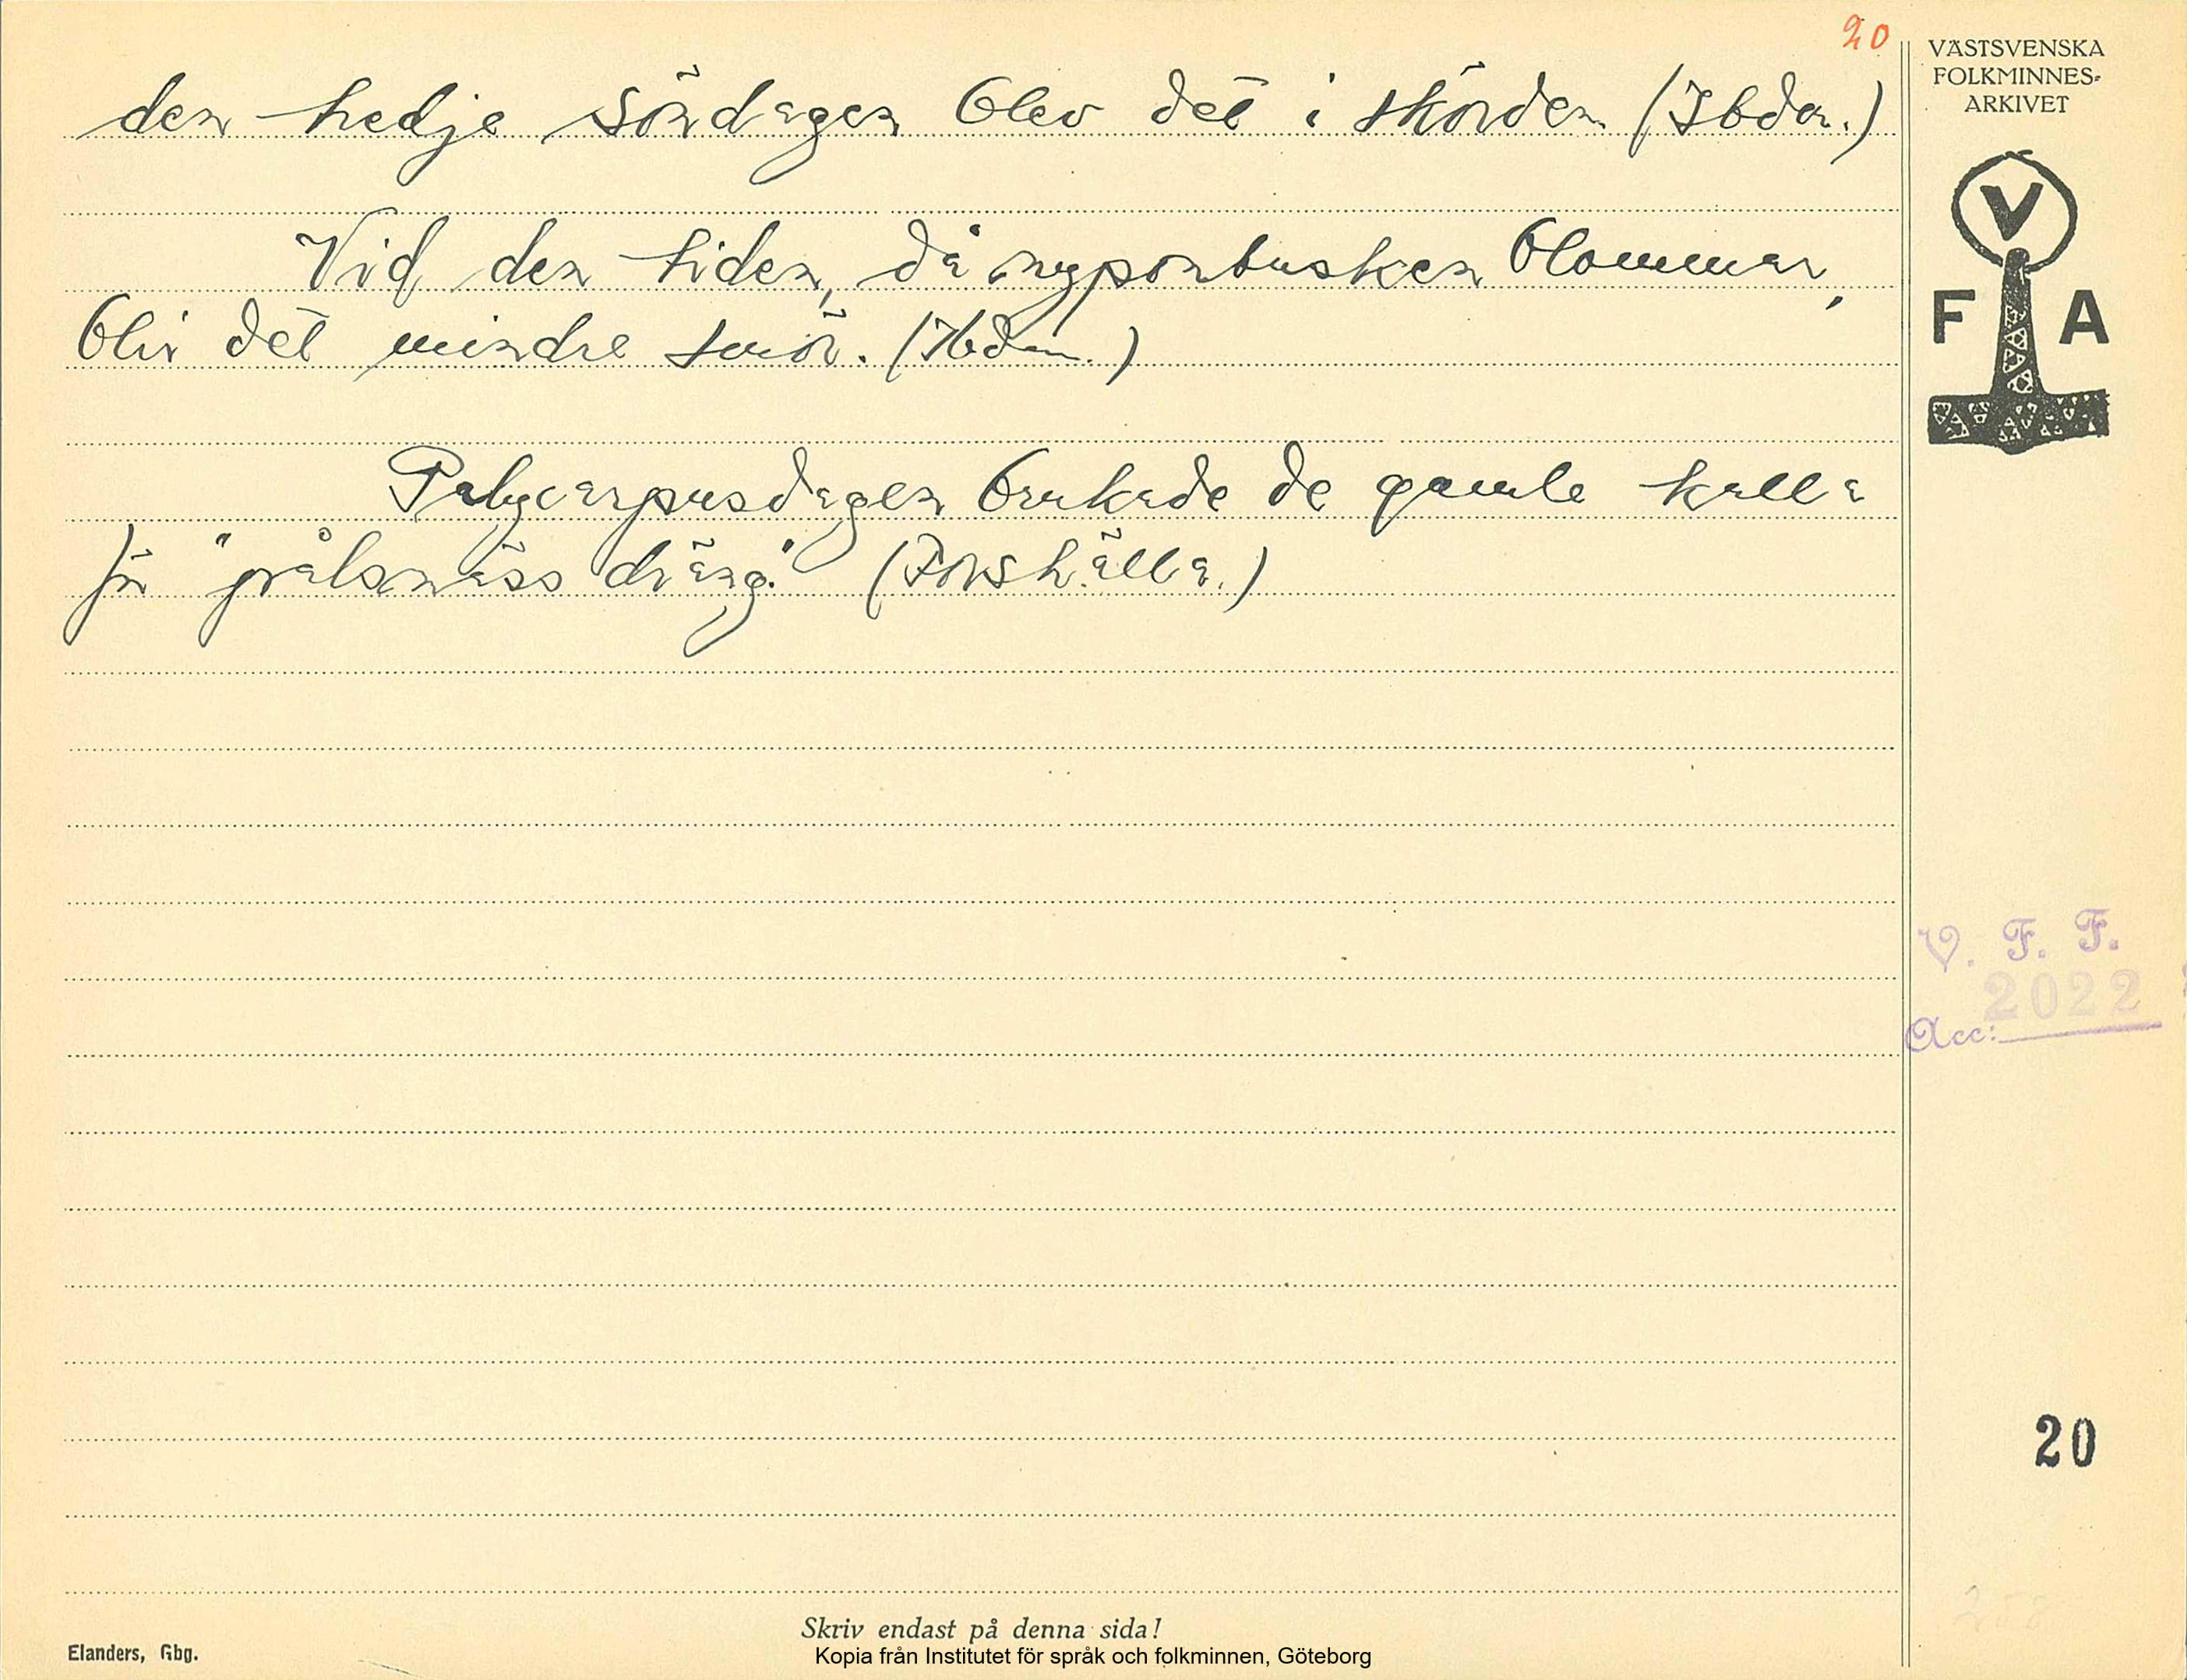 20
den tredje söndagen blev det i skörden (Ibdm.)
Vid den tiden, då nyponbusken blommar,
blir det mindre smör. (Ibdm.)
Polycarpusdagen brukade de gamle kalla
för "prålsmäss dräng." (Forshälla.)
VÄSTSVENSKA
FOLKMINNES-
ARKIVET
V
F A
V. F. F.
2022
Acc:
20
Skriv endast på denna sida!
Elanders, Gbg.
Kopia från Institutet för språk och folkminnen, Göteborg